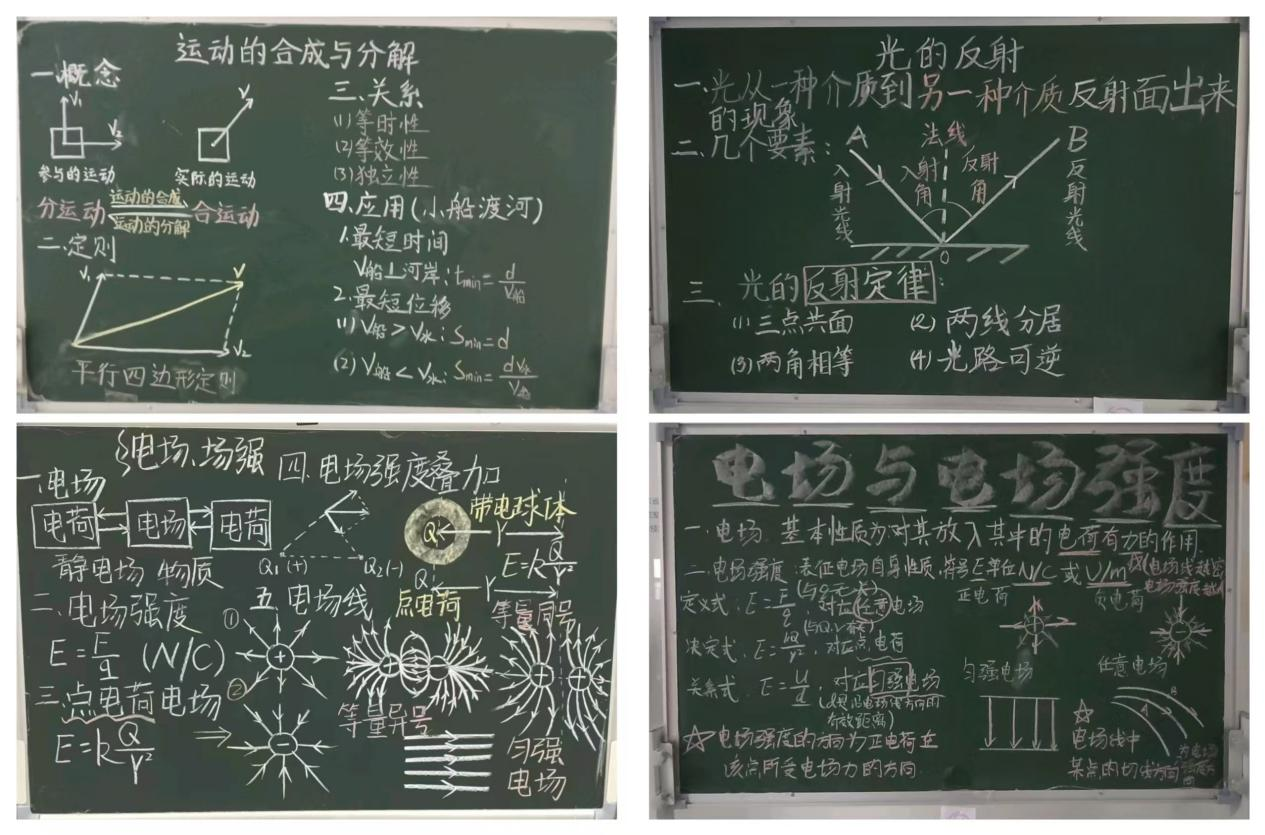 运动的合成与分解
一.概念
V₁
V₂
V
参与的运动
实际的运动
分运动
运动的合成
运动的分解
合运动
二.定则
V₁
V
V₂
平行四边形定则
三.关系
(1)等时性
(2)等效性
(3)独立性
四.应用(小船渡河)
1.最短时间
V船⊥河岸:tmin=d/V船
2.最短位移
(1)V船>V水:Smin=d
(2)V船<V水:Smin=dV水/V船
光的反射
一.光从一种介质到另一种介质反射面出来
的现象
二.几个要素:
A
法线
B
入射角
反射角
入射光线
反射光线
O
三.光的反射定律:
(1)三点共面
(2)两线分居
(3)两角相等
(4)光路可逆
电场、场强
一.电场
电荷
电场
电荷
静电场 物质
二.电场强度
E=F/q (N/C)
三.点电荷电场
E=kQ/r²
四.电场强度叠加
Q₁(+)
Q₂(-)
Q
带电球体
r
E=kQ/r²
Q
r
点电荷
五 电场线
①
+
②
-
等量异号
等量同号
+
+
匀强
电场
电场与电场强度
一.电场:基本性质为对其放入其中的电荷有力的作用.
二.电场强度:表征电场自身性质,符号E单位N/C或V/m
定义式:E=F/q,对应任意电场
(与Q,r有关)
决定式:E=kQ/r²,对应点电荷
关系式:E=U/d,对应匀强电场
(d是沿电场线方向的
有效距离)
☆电场强度的方向为正电荷在
该点所受电场力的方向.
正电荷
+
负电荷
-
匀强电场
任意电场
A
B
☆
电场线中
某点的切线方向